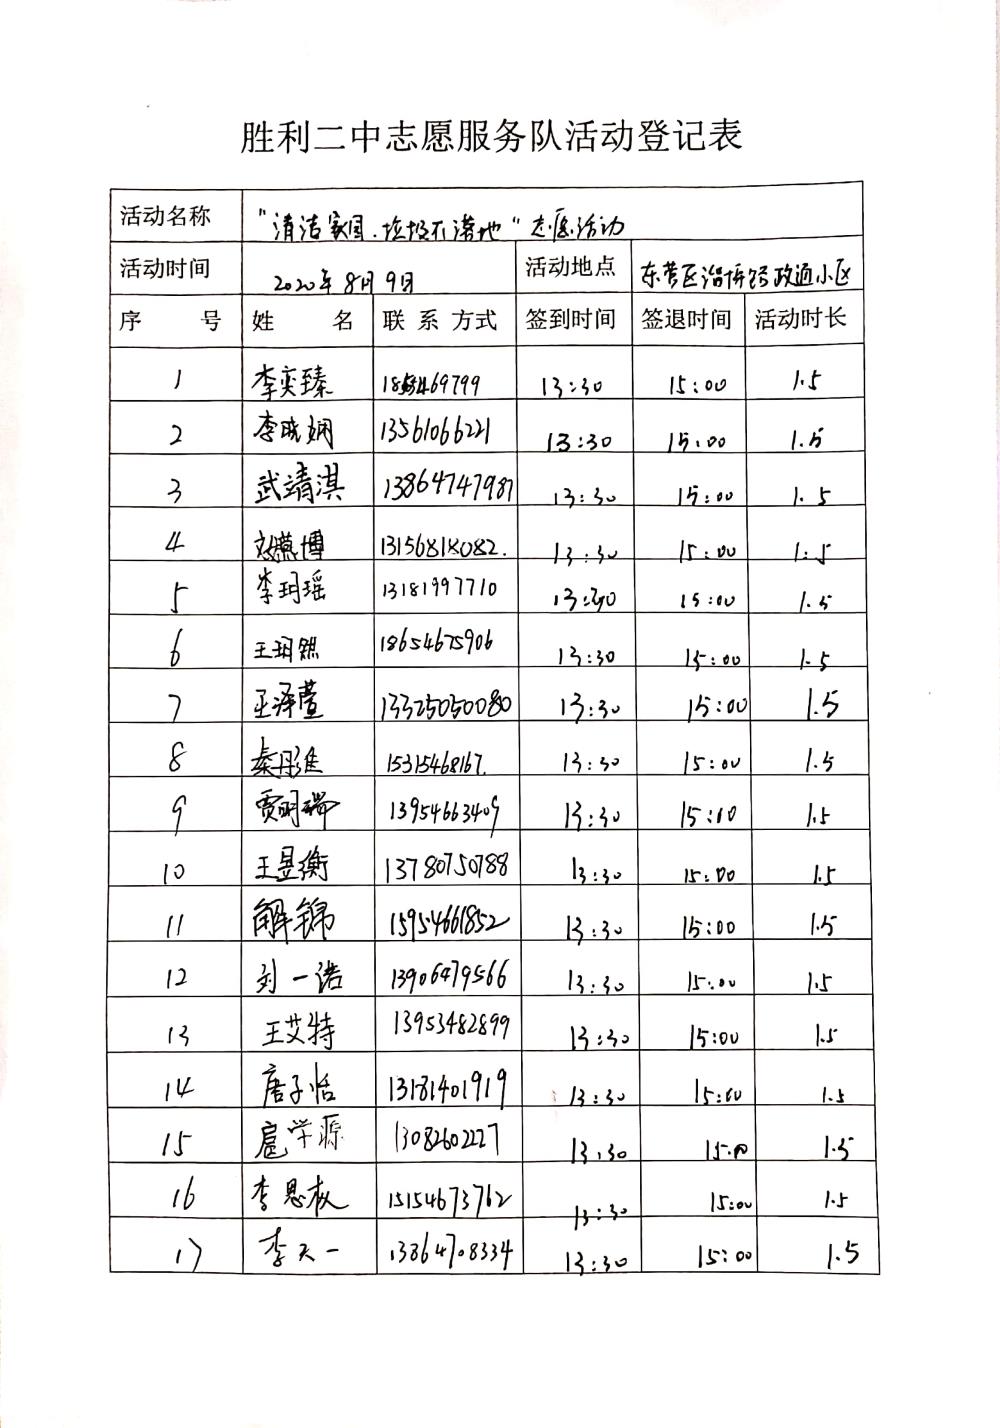 胜利二中志愿服务队活动登记表
活动名称 "清洁家园.垃圾不落地"志愿活动
活动时间 2020年8月9日 活动地点 东营区 政通小区
序 号 姓 名 联系方式 签到时间 签退时间 活动时长
1 李奕臻 13:30 15:00 1.5
2 李晓娴 13561066221 13:30 15:00 1.5
3 武靖淇 13864747987 13:30 15:00 1.5
4 博 13:30 15:00 1.5
5 李玥瑶 13181997710 13:30 15:00 1.5
6 王玥 18654675906 13:30 15:00 1.5
7 泽萱 13325050080 13:30 15:00 1.5
8 秦 15315468167. 13:30 15:00 1.5
9 贾明瑞 13954663409 13:30 15:00 1.5
10 王昱衡 13780750788 13:30 15:00 1.5
11 解锦 15954661852 13:30 15:00 1.5
12 刘一诺 13906479566 13:30 15:00 1.5
13 王艾特 13953482899 13:30 15:00 1.5
14 唐子恬 13181401919 13:30 15:00 1.5
15 扈学源 13082602227 13:30 15:00 1.5
16 李思 15154673762 13:30 15:00 1.5
17 李天一 13864708334 13:30 15:00 1.5